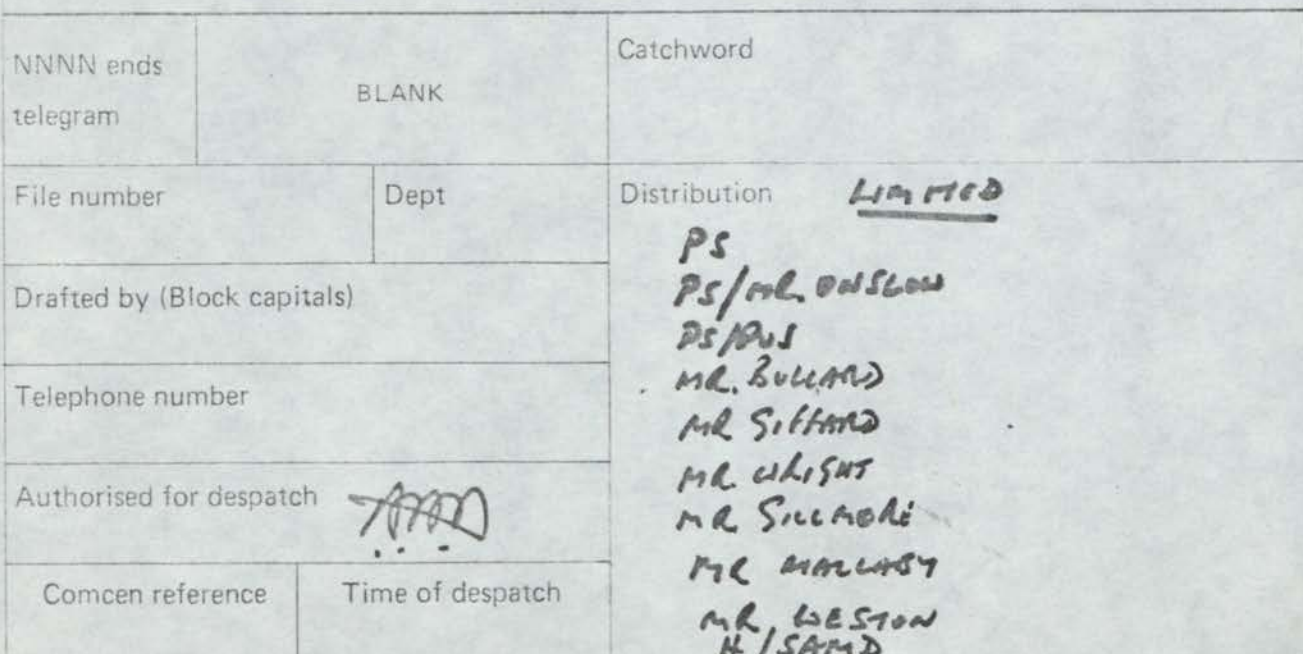 NNNN ends
telegram
BLANK
Catchword
File number
Dept
Distribution LIMITED
PS
PS/MR. ONSLOW
PS/PUS
MR. BULLARD
MR GIFFARD
MR. WRIGHT
MR GILLMORE
MR MALLABY
MR. WESTON
H/SAMD
Drafted by (Block capitals)
Telephone number
Authorised for despatch
Comcen reference
Time of despatch